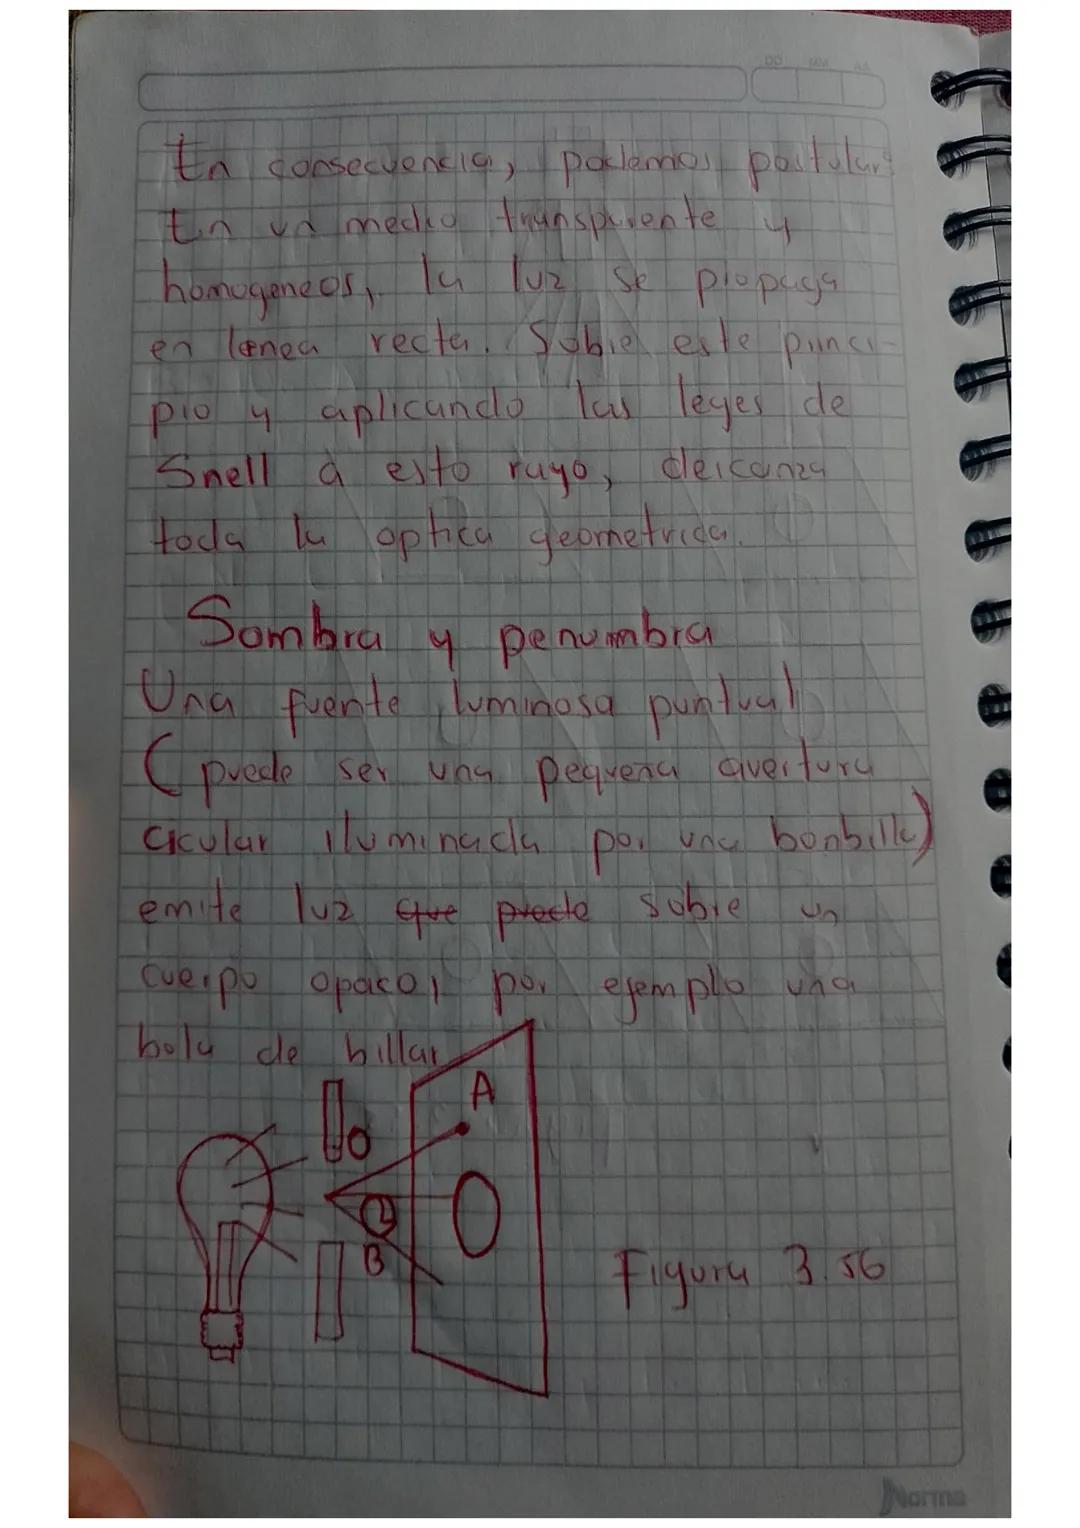 DD MM AA
En consecuencia, podemos postular:
En un medio transparente y
homogeneos, la luz se propaga
en lenea recta. Sobre este princi-
pio y aplicando las leyes de
Snell a esto rayo, descanza
toda la optica geometrica.
Sombra y penumbra
Una fuente luminosa puntual
(puede ser una pequeña avertura
cicular iluminada por una bonbilla)
emite luz que prede sobre un
cuerpo opaco, por ejemplo una
bola de billar
A
O
B
Figura 3.56
Norma